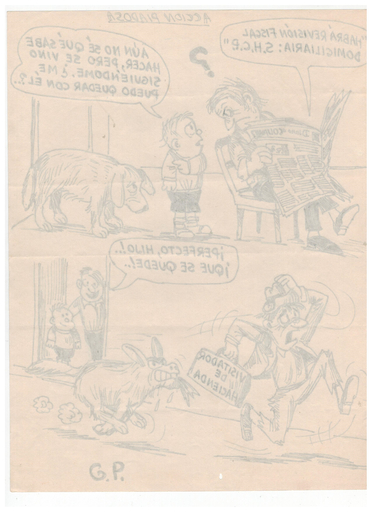 ACCION PIADOSA
"HABRÁ REVISIÓN FISCAL
DOMICILIARIA: S.H.C.P."
AÚN NO SÉ QUÉ SABE
HACER, PERO SE VINO
SIGUIÉNDOME. ¿ME
PUEDO QUEDAR CON ÉL...?
?
¡PERFECTO, HIJO!
¡QUE SE QUEDE!..
VISITADOR
DE
HACIENDA
G.P.